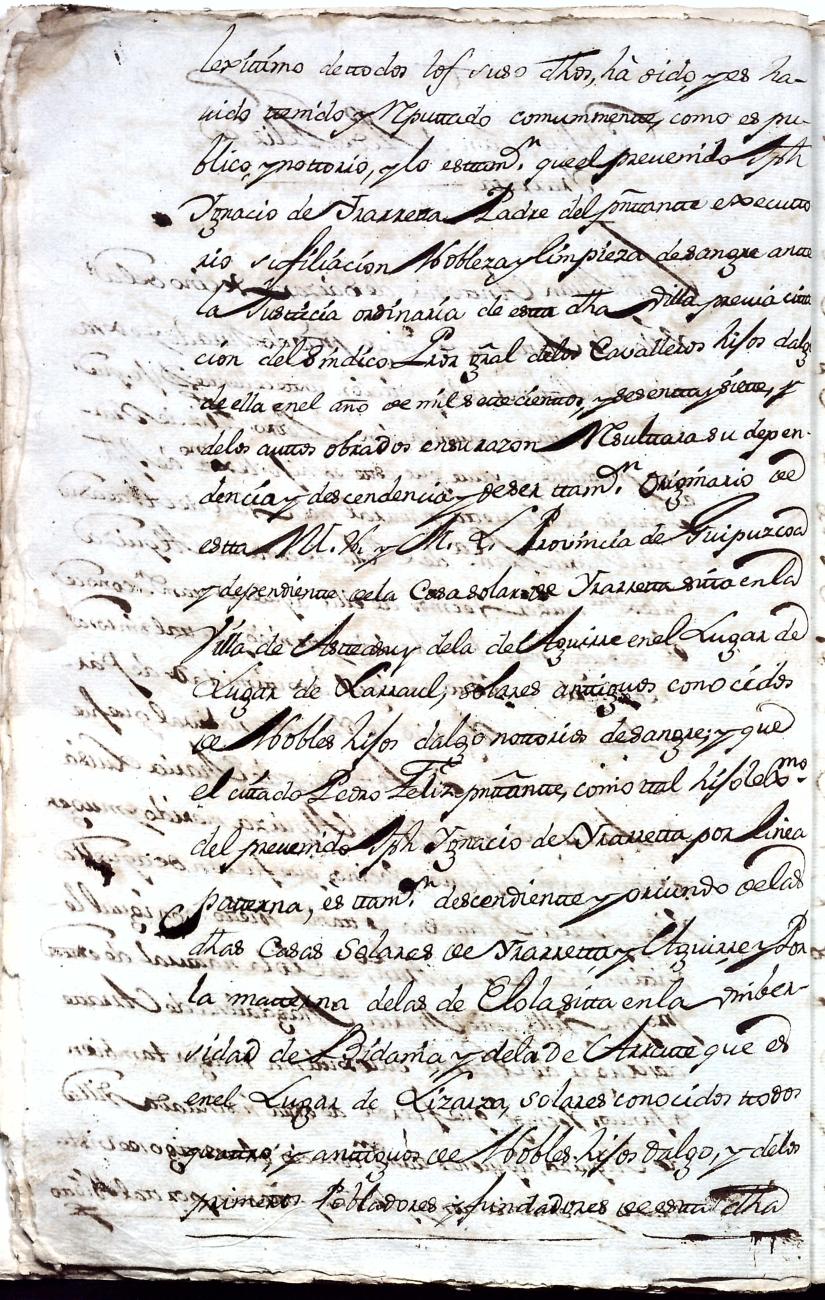 lexittimo de ttodos los suso dhos, hà sido, y es ha-
vido ttenido y Reputtado comunmente, como es pu-
blico, y nottorio, y lo es ttamn. que el prevenido Jph
Ygnacio de Yrarretta Padre del presnttantte executto
rio su filiacion Nobleza y limpieza de sangre antte
la Justicia ordinaria de estta dha villa previa citta
cion del Síndico Pror gral delos Cavalleros hijos dalgo
de ella en el año de mil settecienttos, y sesentta y siette, y
delos auttos obrados en su razon Resulttara su depen-
dencia y descendencia, y de ser ttamn. Originario de
estta M. N. y M. L. Provincia de Guipuzcoa
y dependientte de la Casa solar de Yrarretta sitta en la
Villa de Astteasu y dela de Aguirre en el Lugar de
Lugar de Larraul, solares anttiguos conocidos
de Nobles hijos dalgo nottorios de sangre; y que
el cittado Pedro Feliz presnttantte, como ttal hijo lexmo.
del prevenido Jph Ygnacio de Yrarretta por linea
patterna, es ttamn. descendientte y oriundo de las
dhas Casas Solares de Yrarretta y Aguirre, y Por
la matterna delas de Elola sitta en la vniber-
sidad de Bidania y dela de Arratte que es
en el Lugar de Lizarza, solares conocidos ttodos
quattro, y anttiguos de Nobles hijos dalgo, y delos
primeros Pobladores y fundadores de estta dha